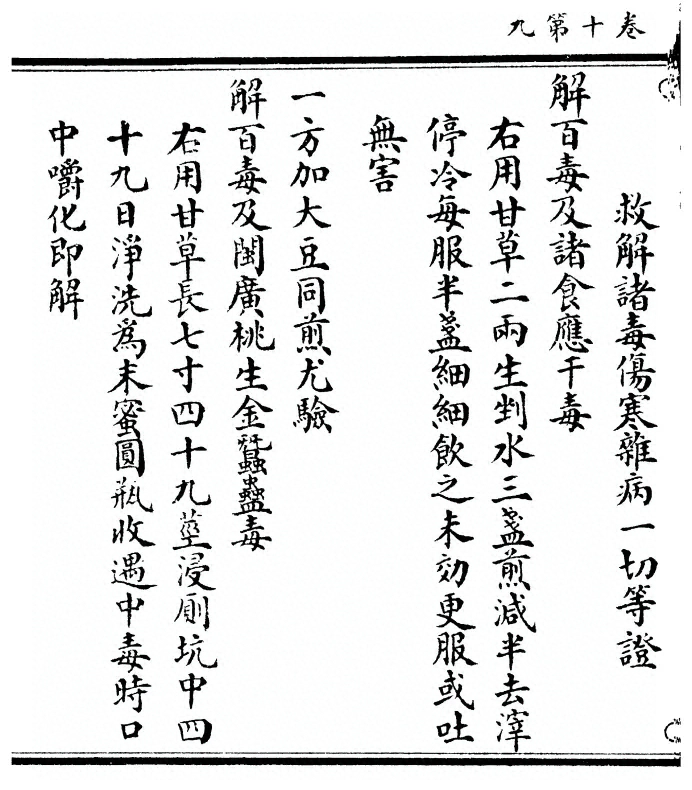 卷十第九
救解諸毒傷寒雜病一切等證
解百毒及諸食應干毒
右用甘草二兩生剉水三盞煎減半去滓
停冷每服半盞細細飲之未効更服或吐
無害
一方加大豆同煎尤驗
解百毒及閩廣桃生金蠶蠱毒
右用甘草長七寸四十九莖浸厠坑中四
十九日淨洗為末蜜圓瓶收遇中毒時口
中嚼化即解